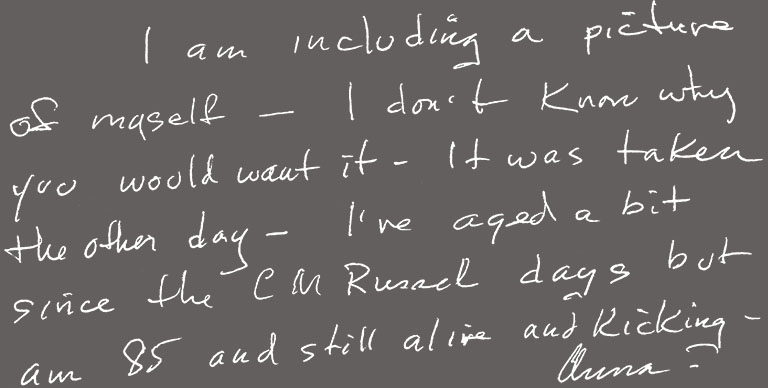 I am including a picture
of myself - I don't know why
you would want it - It was taken
the other day - I've aged a bit
since the C M Russel days but
am 85 and still alive and kicking -